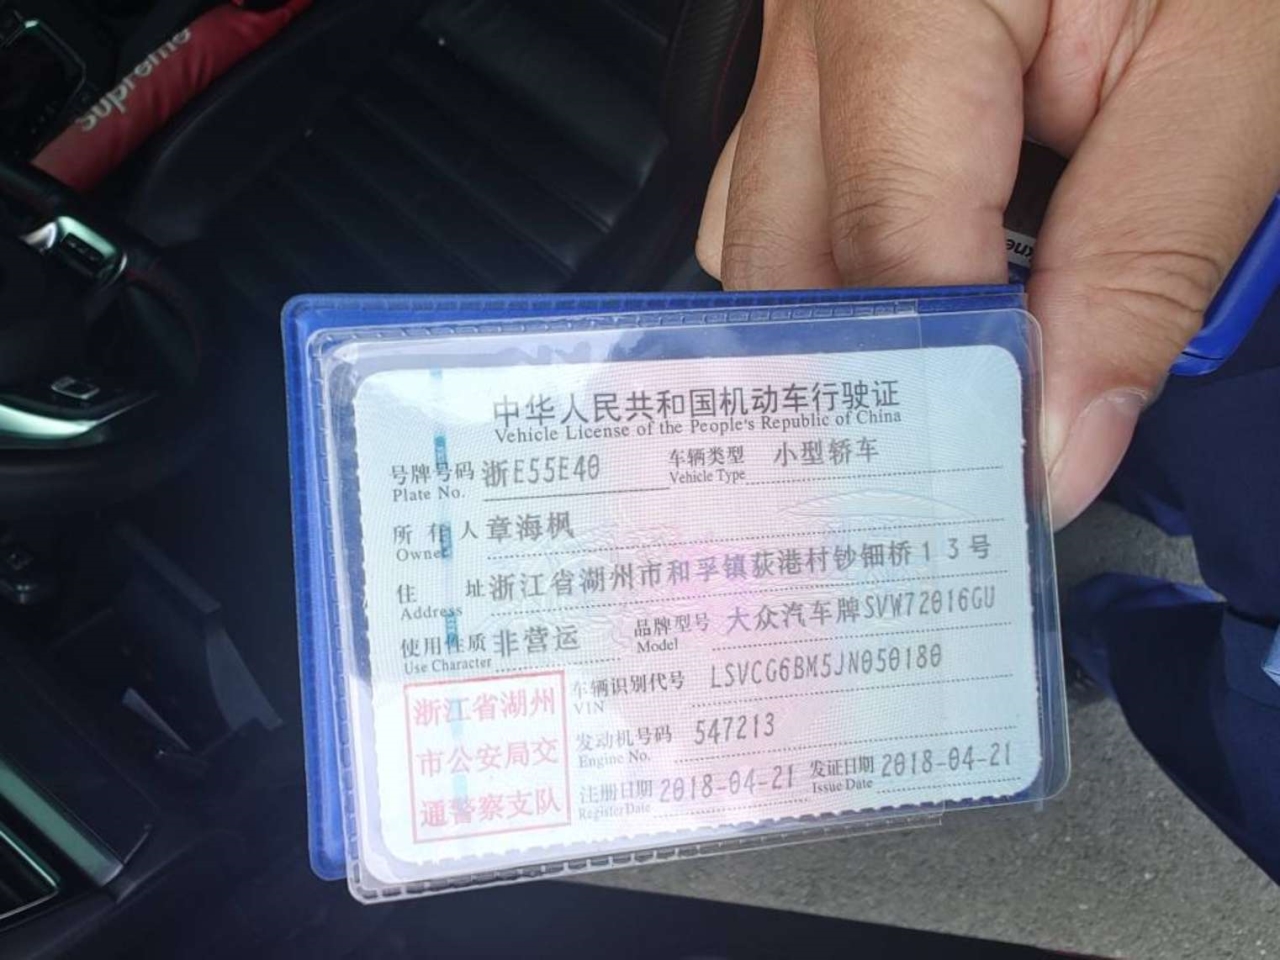 Supreme
中华人民共和国机动车行驶证
Vehicle License of the People's Republic of China
号牌号码 浙E55E40 车辆类型 小型轿车
Plate No. Vehicle Type
所有人 章海枫
Owner
住址 浙江省湖州市和孚镇荻港村钞钿桥13号
Address
使用性质 非营运 品牌型号 大众汽车牌SVW72016GU
Use Character Model
浙江省湖州
市公安局交
通警察支队
车辆识别代号 LSVCG6BM5JN050180
VIN
发动机号码 547213
Engine No.
注册日期 2018-04-21 发证日期 2018-04-21
Register Date Issue Date